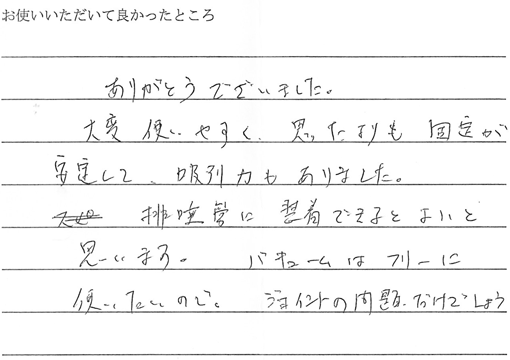 お使いいただいて良かったところ
ありがとうございました。
大変 使いやすく、思ったよりも 固定が
安定して、吸引力も ありました。
排唾管に 装着できるとよいと
思います。 バキュームは フリーに
使いたいので。 ジョイントの問題だけでしょう